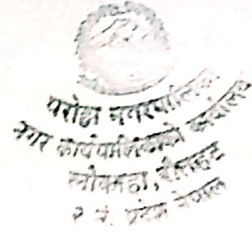 परोहा नगरपालिका
नगर कार्यपालिकाको कार्यालय
, रौतहट
२ नं. प्रदेश नेपाल